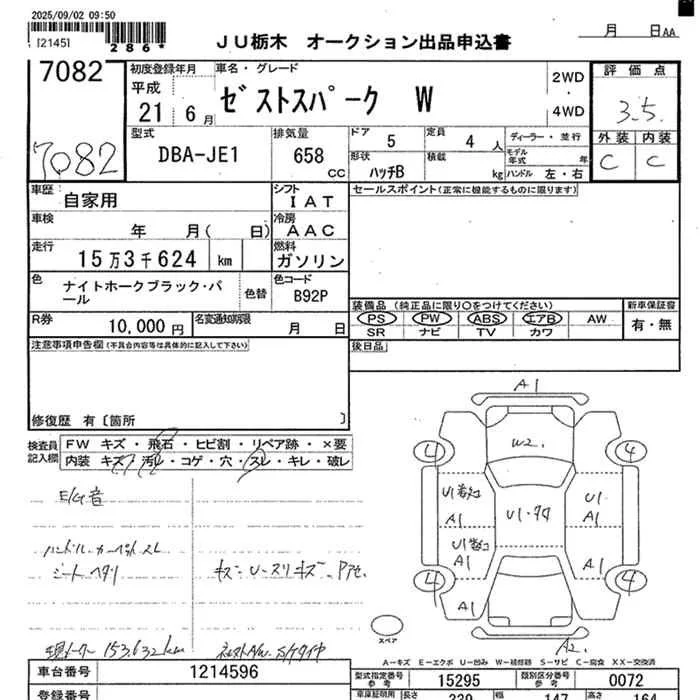 2025/09/02 09:50
[2145]
286*
JU栃木 オークション出品申込書
月 日AA
7082
7082
初度登録年月
平成
21 6月
車名・グレード
ゼストスパーク W
2WD
・
4WD
評価点
3.5
外装 内装
C C
型式
DBA-JE1
排気量
658
CC
ドア 5
定員 4 人
形状 ハッチB
積載 kg
ディーラー・並行
モデル年式 年
ハンドル 左・右
車歴 自家用
シフト IAT
車検 年 月( 日)
冷房 AAC
走行 15万3千624 km
燃料 ガソリン
色 ナイトホークブラック・パール
色替
色コード B92P
R券 10,000円
名変通知期限 月 日
セールスポイント(正常に機能するものに限ります)
装備品 (純正品に限り○をつけてください)
PS PW ABS エアB AW
SR ナビ TV カワ
新車保証書
有・無
後日品
注意事項申告欄(不具合内容等は具体的に記入して下さい)
修復歴 有〔箇所 〕
検査員記入欄
FW キズ・飛石・ヒビ割・リペア跡・×要
内装 キズ・汚レ・コゲ・穴・スレ・キレ・破レ
E/G音
ハンドル・カーペットスレ
シートヘタリ
キズ U-スリキズ
現メーター 153,632km
A1
W2
4 4
A1
A1
U1
A1
A1
A1
4 4
A1
A2
スペア
A-キズ E-エクボ U-凹み W-補修跡 S-サビ C-腐食 XX-交換済
車台番号 1214596
登録番号
型式指定番号 参考 15295
類別区分番号 参考 0072
車庫証明用 長さ 339 幅 147 高さ 164